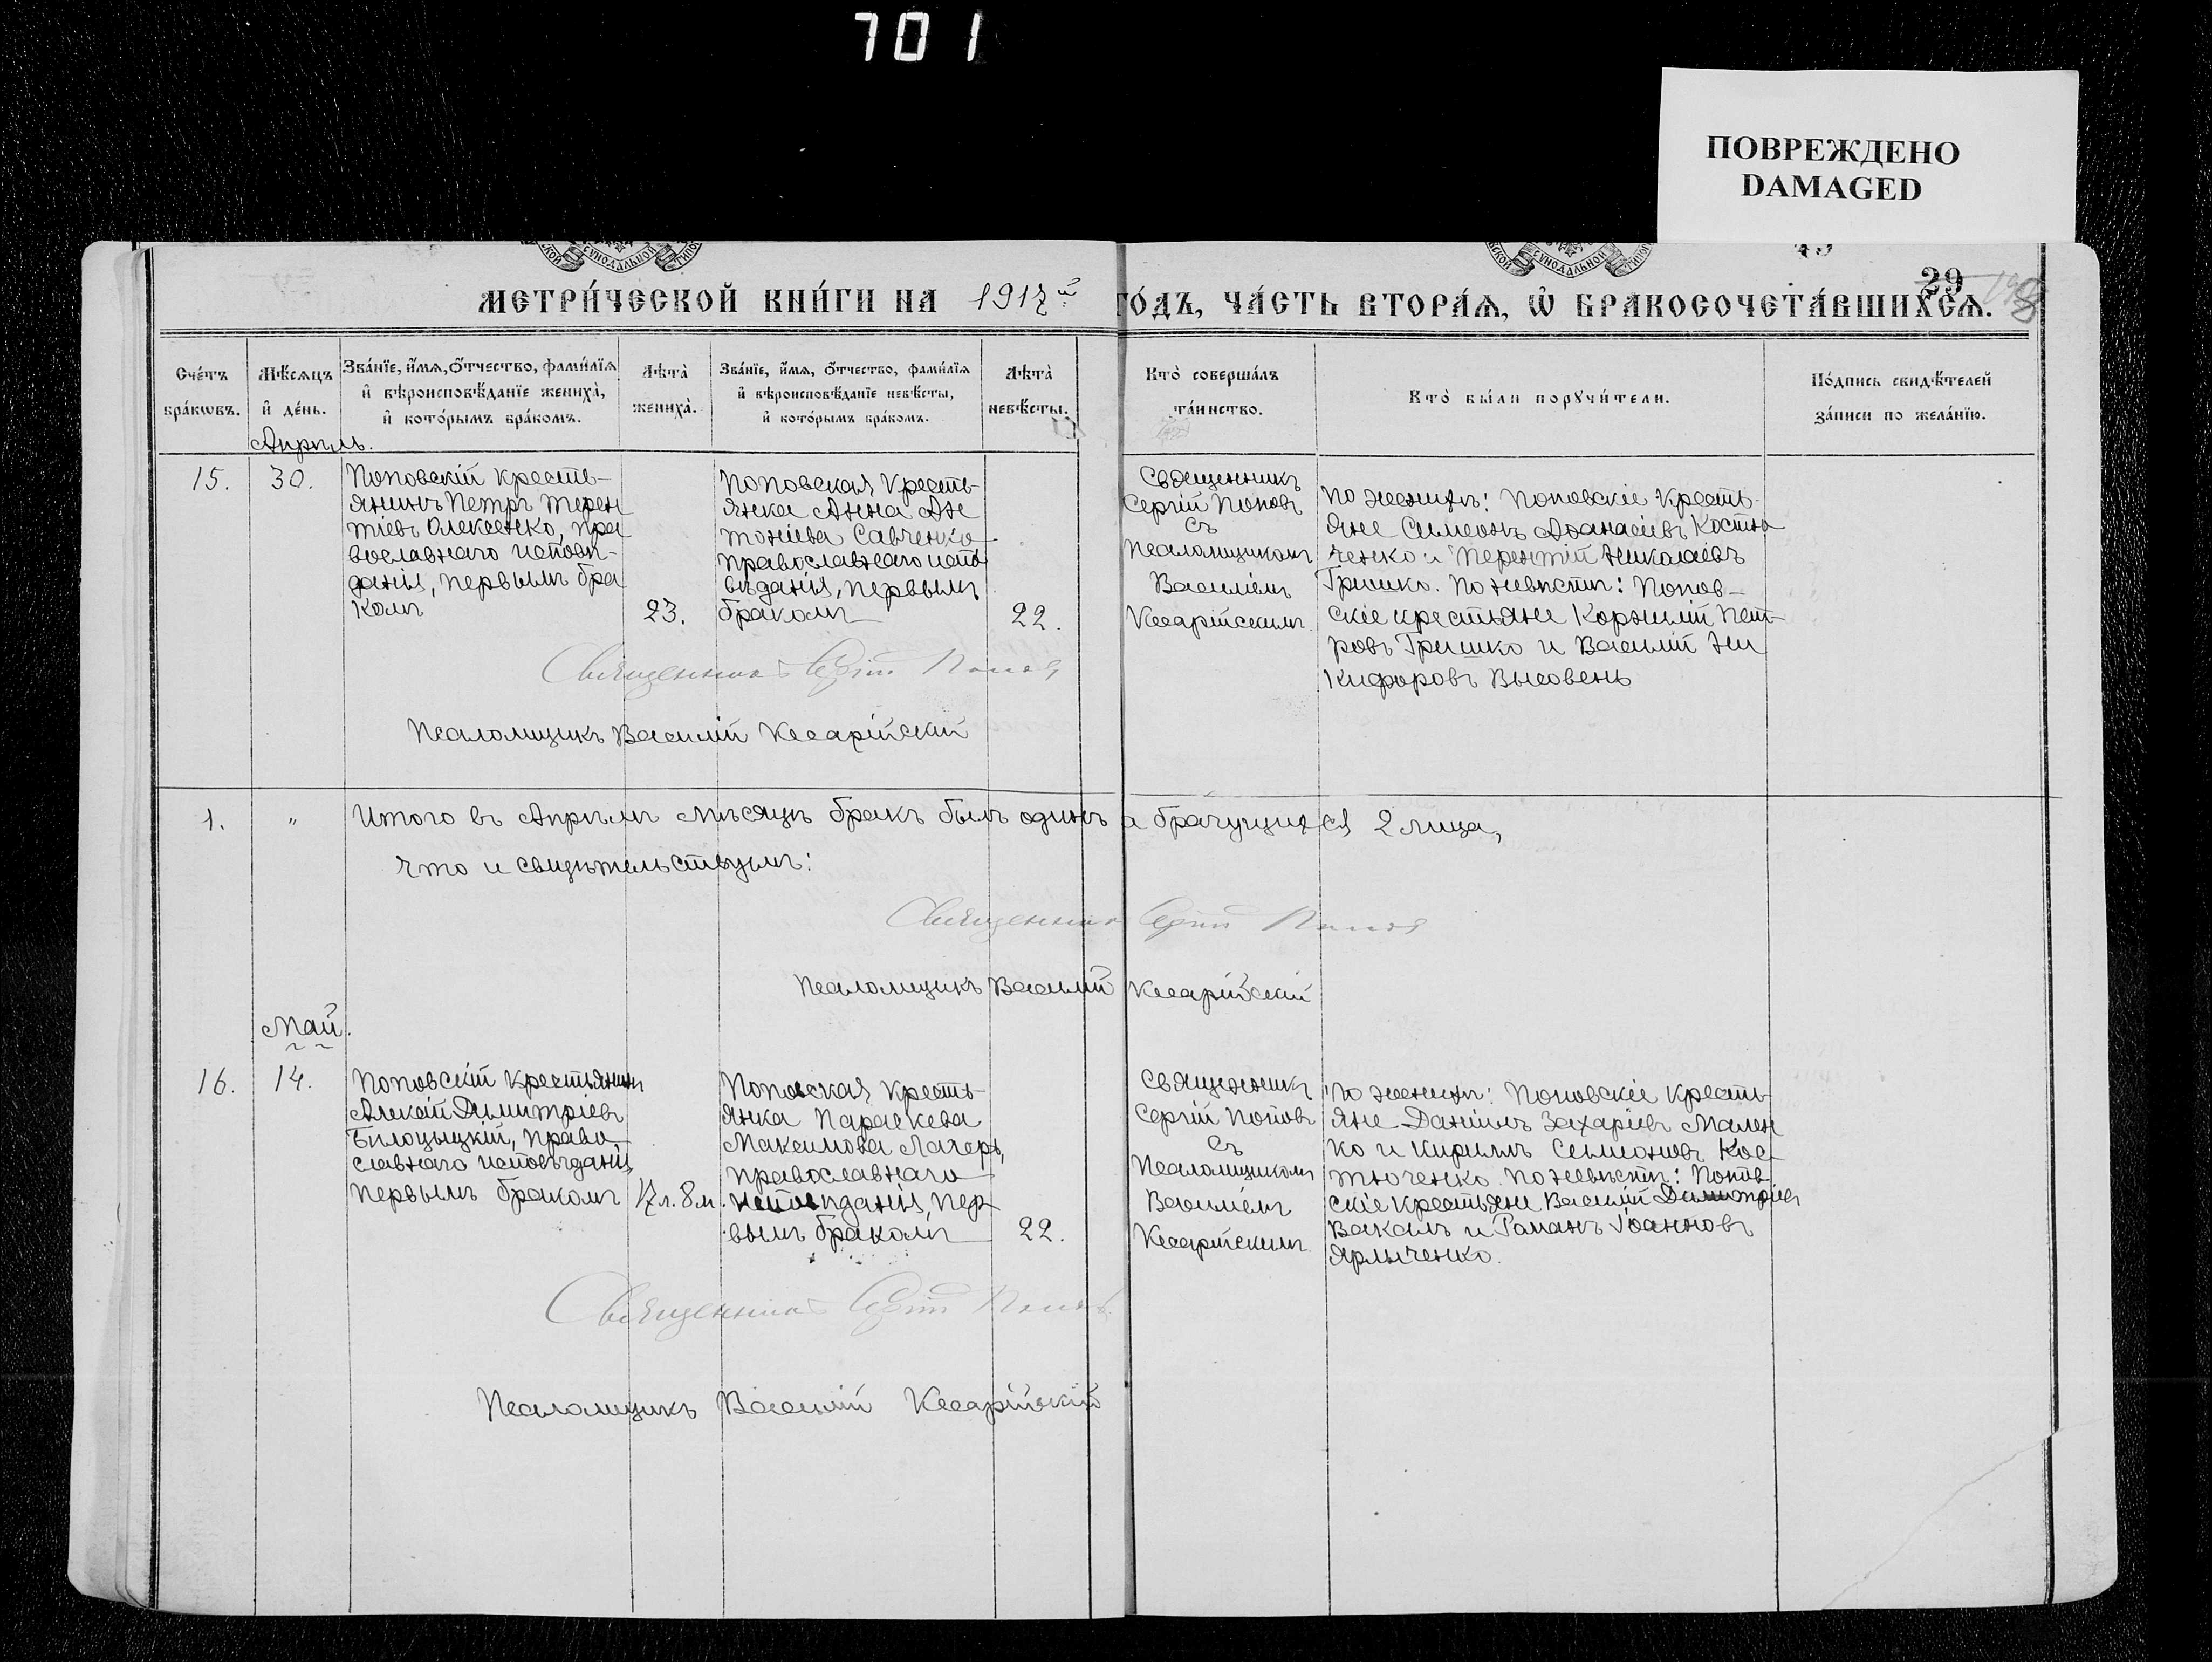 701
ПОВРЕЖДЕНО
DAMAGED
29
МЕТРИ́ЧЕСКОЙ КНИ́ГИ НА 1917й ГО́ДЪ, ЧА́СТЬ ВТОРА́Ѧ, Ѡ҆ БРАКОСОЧЕТА́ВШИХСЯ.
Сче́тъ
бра́кѡвъ.
Мѣ́сѧцъ
и҆ де́нь.
Зва́нїе, и҆́мѧ, ѻ҆́тчество, фами́лїѧ
и҆ вѣроисповѣ́данїе жениха̀,
и҆ кото́рымъ бра́комъ.
Лѣта̀
жениха̀.
Зва́нїе, и҆́мѧ, ѻ҆́тчество, фами́лїѧ
и҆ вѣроисповѣ́данїе невѣ́сты,
и҆ кото́рымъ бра́комъ.
Лѣта̀
невѣ́сты.
Кто̀ соверша́лъ
та́инство.
Кто̀ бы́ли порꙋчи́тели.
По́дпись свидѣ́телей
за́писи по жела́нїю.
Апрѣль.
15.
30.
Поповскій кресть-
янинъ Петръ Терен
тіевъ Олексенко, пра
вославнаго исповѣ-
данія, первымъ бра
комъ
23.
Поповская кресть-
янка Анна Ан
тоніева Савченко
православнаго испо
вѣданія, первымъ
бракомъ
22.
Священникъ
Сергій Поповъ
съ
Псаломщикомъ
Василіемъ
Кесарійскимъ
По женихѣ: Поповскіе кресть-
яне Симеонъ Аѳанасіевъ Костю
ченко и Терентій Николаевъ
Гришко. По невѣстѣ: Попов-
скіе крестьяне Корнилій Пет-
ровъ Гришко и Василій Ни
кифоровъ Высовень
Священникъ Сергій Поповъ
Псаломщикъ Василій Кесарійскій
1.
"
Итого въ Апрѣлѣ мѣсяцѣ бракъ былъ одинъ а брачущихся 2 лица,
что и свидѣтельствуемъ:
Священникъ Сергій Поповъ
Псаломщикъ Василій Кесарійскій
Май.
16.
14.
Поповскій крестьянинъ
Алексій Димитріевъ
Билоцыцкій, право
славнаго исповѣданія
первымъ бракомъ
17 л. 8 м.
Поповская кресть-
янка Параскева
Максимова Лагерь,
православнаго
исповѣданія, пер
вымъ бракомъ
22.
Священникъ
Сергій Поповъ
съ
Псаломщикомъ
Василіемъ
Кесарійскимъ
По женихѣ: Поповскіе кресть-
яне Даніилъ Захаріевъ Мален
ко и Кириллъ Симеоновъ Кос
тюченко. По невѣстѣ: Попов
скіе крестьяне Василій Димитріевъ
Вакалъ и Романъ Іоанновъ
Ярлыченко.
Священникъ Сергій Поповъ
Псаломщикъ Василій Кесарійскій